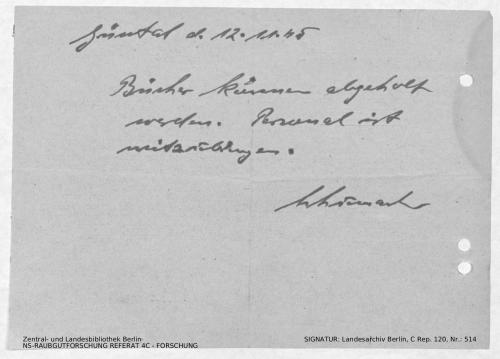 d. 12.11.45
Bücher können abgeholt
werden. Personal ist
mitzubringen.
Zentral- und Landesbibliothek Berlin
NS-RAUBGUTFORSCHUNG REFERAT 4C - FORSCHUNG
SIGNATUR: Landesarchiv Berlin, C Rep. 120, Nr.: 514